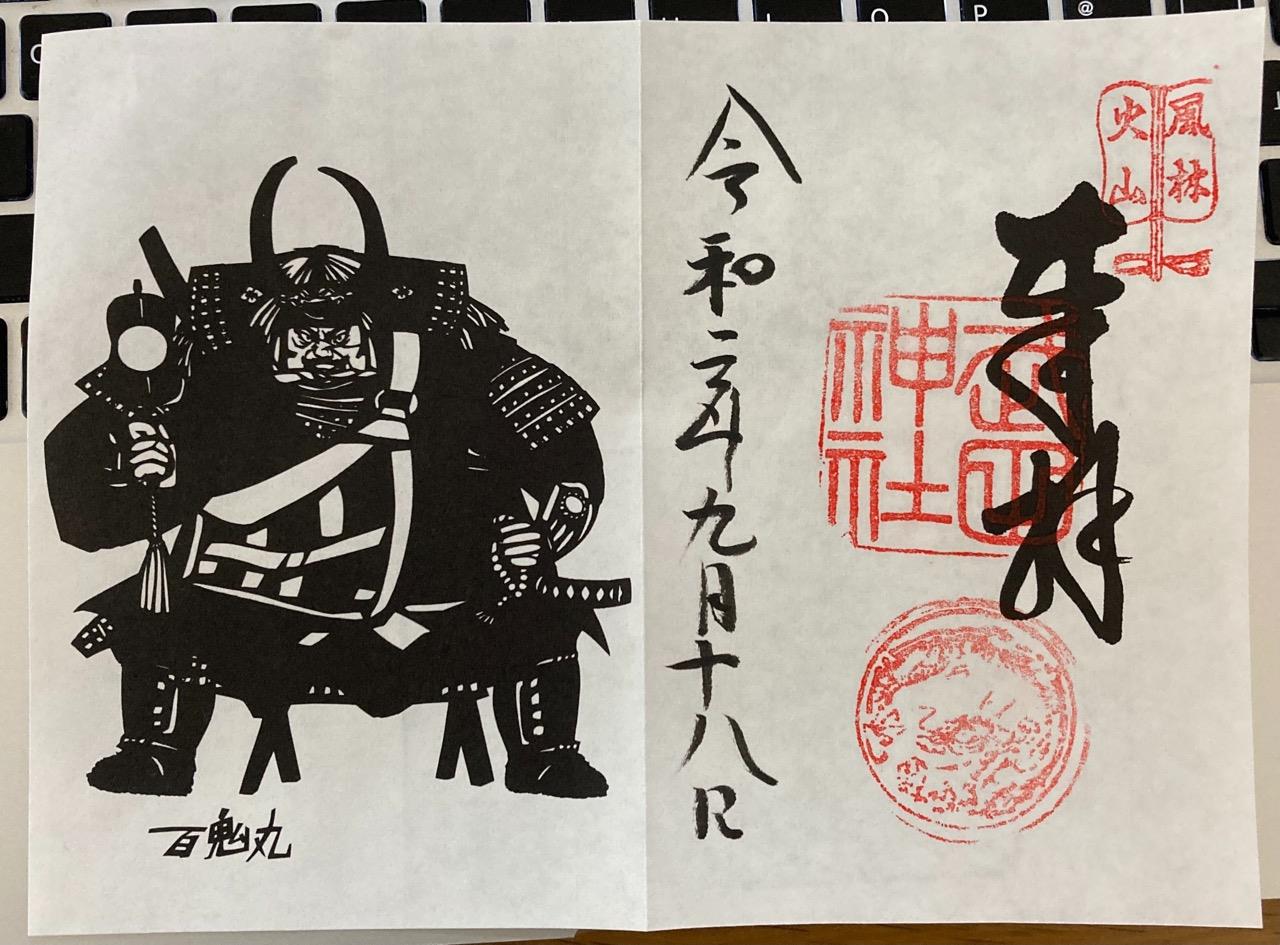 O P @
風林
火山
奉拝
武田
神社
令和二年九月十八日
百鬼丸